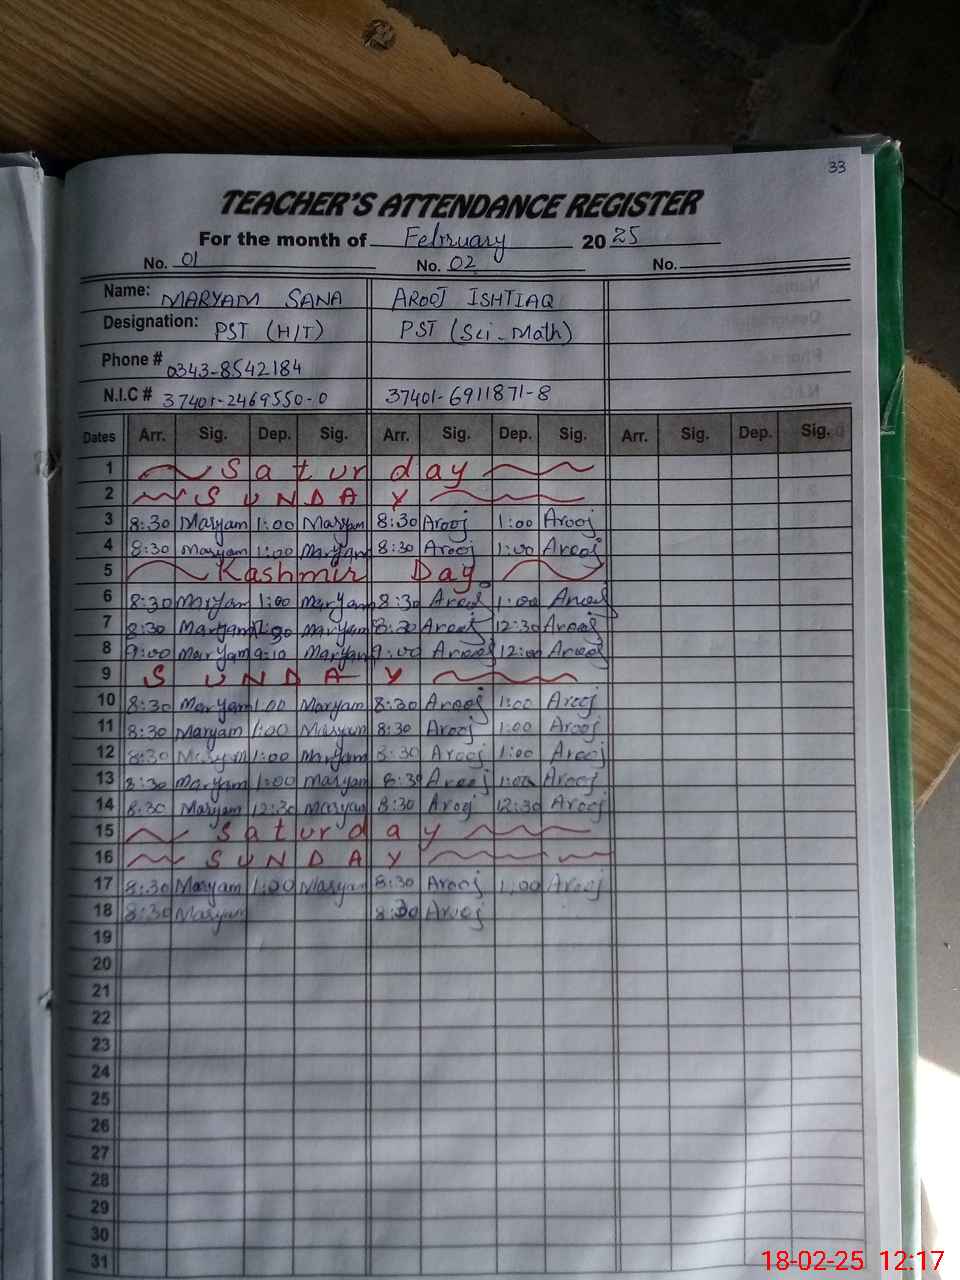 33
TEACHER'S ATTENDANCE REGISTER
For the month of February 20 25
No. 01 No. 02 No.
Name: MARYAM SANA AROOJ ISHTIAQ
Designation: PST (H/T) PST (Sci-Math)
Phone # 0343-8542184
N.I.C # 37401-2469550-0 37401-6911871-8
Dates Arr. Sig. Dep. Sig. Arr. Sig. Dep. Sig. Arr. Sig. Dep. Sig.
1 Saturday
2 SUNDAY
3 8:30 Maryam 1:00 Maryam 8:30 Arooj 1:00 Arooj
4 8:30 Maryam 1:00 Maryam 8:30 Arooj 1:00 Arooj
5 Kashmir Day
6 8:30 Maryam 1:00 Maryam 8:30 Arooj 1:00 Arooj
7 8:30 Maryam Maryam 8:30 Arooj 12:30 Arooj
8 9:00 Maryam 9:10 Maryam 9:00 Arooj 12:00 Arooj
9 SUNDAY
10 8:30 Maryam 1:00 Maryam 8:30 Arooj 1:00 Arooj
11 8:30 Maryam 1:00 Maryam 8:30 Arooj 1:00 Arooj
12 8:30 Maryam 1:00 Maryam 8:30 Arooj 1:00 Arooj
13 8:30 Maryam 1:00 Maryam 8:30 Arooj 1:00 Arooj
14 8:30 Maryam 12:30 Maryam 8:30 Arooj 12:30 Arooj
15 Saturday
16 SUNDAY
17 8:30 Maryam 1:00 Maryam 8:30 Arooj 1:00 Arooj
18 8:30 Maryam 8:30 Arooj
19
20
21
22
23
24
25
26
27
28
29
30
31
18-02-25 12:17